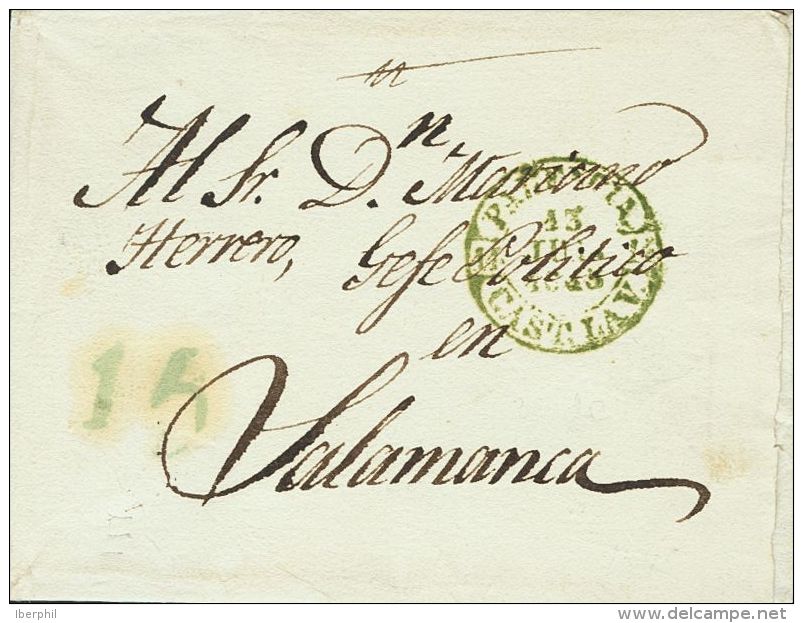 Al Sr. Dn. Mariano
Herrero, Gefe Politico
en
Salamanca
13
CAST. LA V.
14
Iberphil
delcampe.net